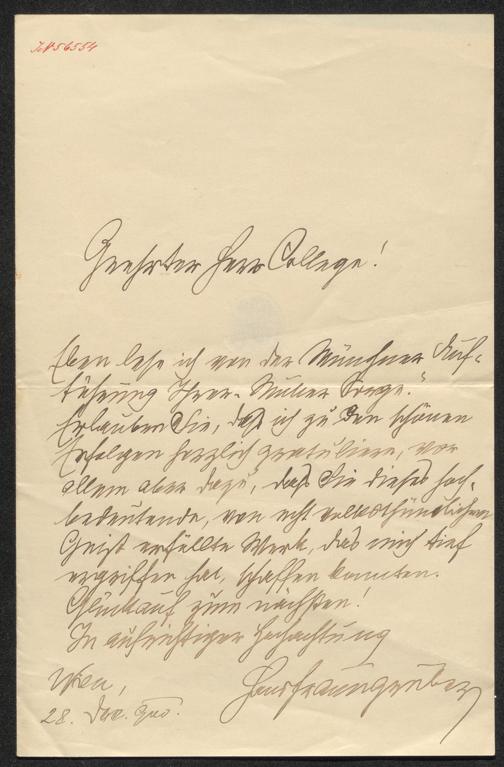 I.N. 56554
Geehrter Herr College!
Eben lese ich von der Münchner Auf-
führung Ihrer „Mutter Sorge."
Erlauben Sie, daß ich zu den schönen
Erfolgen herzlich gratuliere, vor
allem aber dazu, daß Sie dieses hoch-
bedeutende, von echt volksthümlichem
Geist erfüllte Werk, das mich tief
ergriffen hat, schaffen konnten.
Glückauf zum nächsten!
In aufrichtiger Hochachtung
Wien,
Hans Fraungruber
28. Dec.